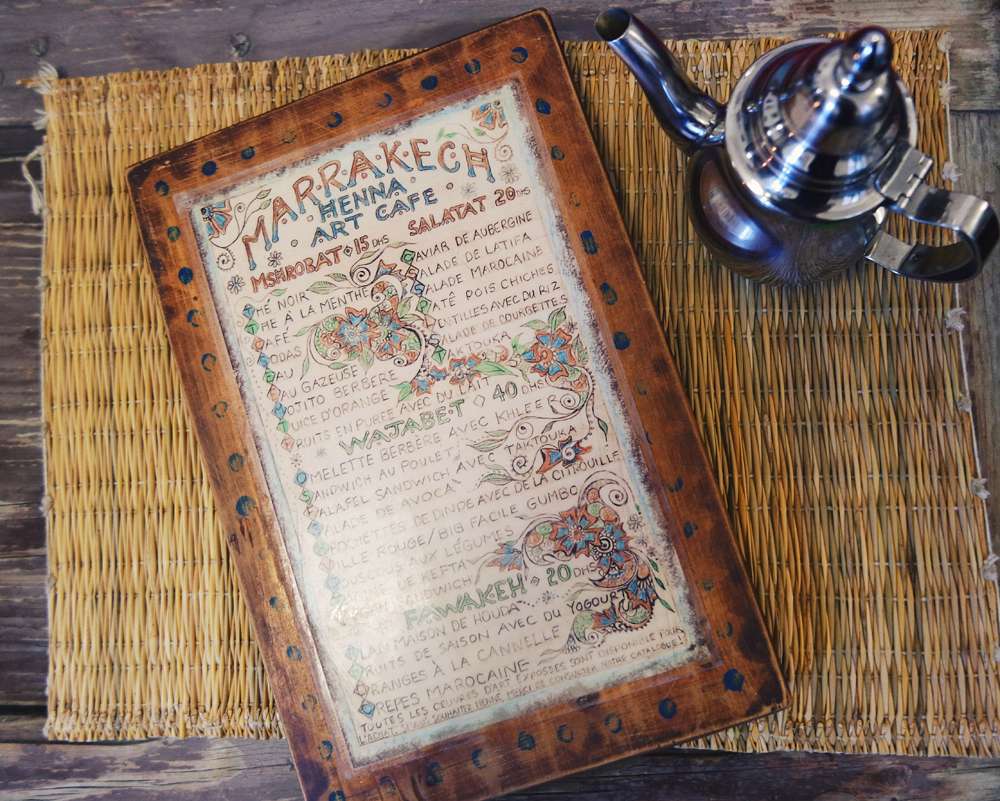 MARRAKECH
HENNA
ART CAFE
MSHROBAT 15 DHS
THÉ NOIR
THÉ À LA MENTHE
CAFÉ
SODAS
EAU
EAU GAZEUSE
MOJITO BERBERE
JUICE D'ORANGE
FRUITS EN PUREE AVEC DU LAIT
SALATAT 20 DHS
CAVIAR DE AUBERGINE
SALADE DE LATIFA
SALADE MAROCAINE
PATÉ POIS CHICHES
LENTILLES AVEC DU RIZ
SALADE DE COURGETTES
TAKTOUKA
WAJABET 40 DHS
OMELETTE BERBÈRE AVEC KHLEER
SANDWICH AU POULET
FALAFEL SANDWICH AVEC TAKTOUKA
SALADE DE AVOCA
BROCHETTES DE DINDE AVEC DE LA CITROUILLE
ROUGE/BIG FACILE GUMBO
AUX LÉGUMES
DE KEFTA
SANDWICH
FAWAKEH 20 DHS
FLAN MAISON DE HOUDA
FRUITS DE SAISON AVEC DU YOGOURT
ORANGES À LA CANNELLE
CREPES MAROCAINE
TOUTES LES OEUVRES D'ART EXPOSÉES SONT DISPONIBLE POUR
L'ACHAT SOUHAITER HENNÉ, MERCI DE CONSULTER NOTRE CATALOGUE!